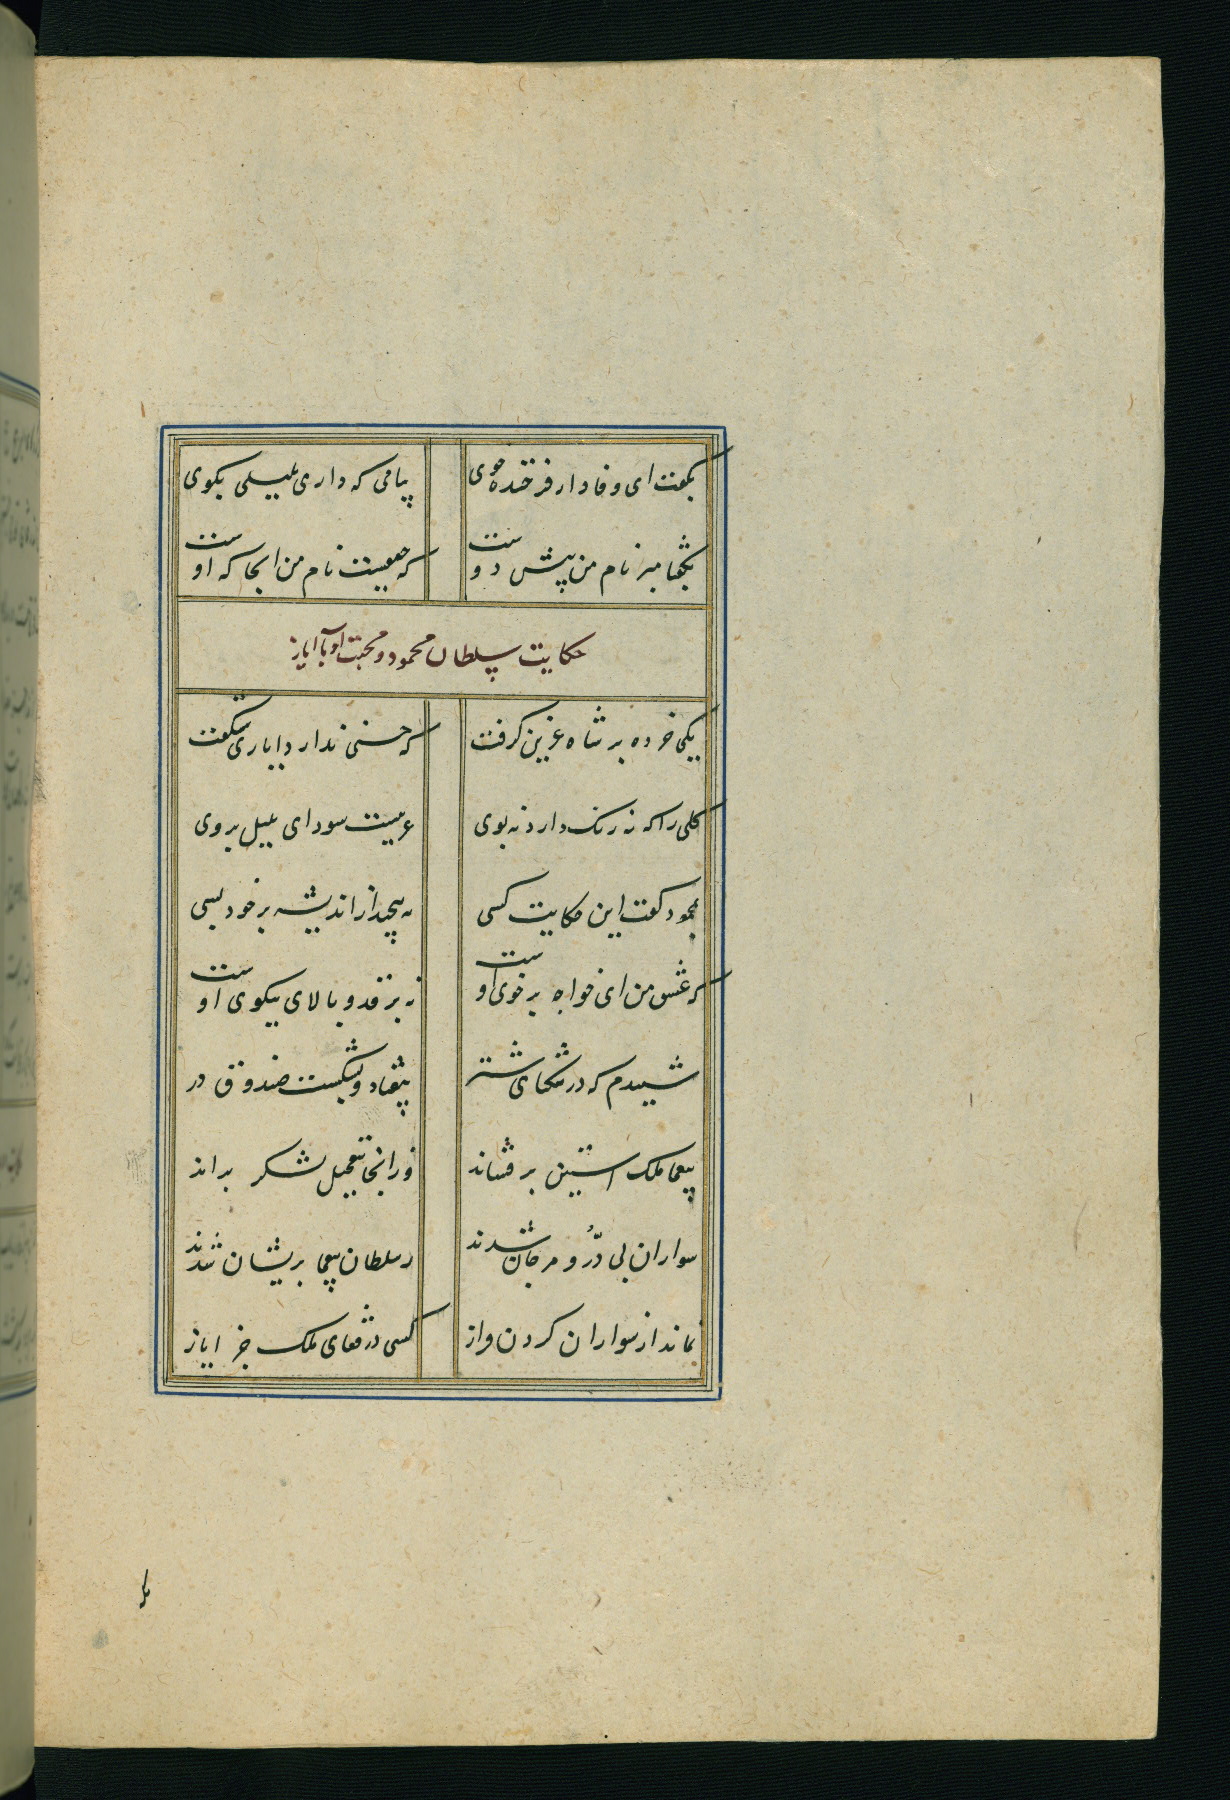 بگفت ای وفادار فرخنده خوی پیامی که داری بلیلی بگوی
بگفتا مبر نام من پیش دوست که حیفیست نام من انجا که اوست
حکایت سلطان محمود و محبت او با ایاز
یکی خرده بر شاه غزنین کرفت که حسنی ندارد ایاز ای شگفت
کلی را که نه رنک دارد نه بوی غریبست سودای بلبل بروی
بمحمود کفت این حکایت کسی به پیچید از اندیشه بر خود بسی
که عشق من ای خواجه بر خوی اوست نه بر قد و بالای نیکوی اوست
شنیدم که در تنکنای شتر بیفتاد و بشکست صندوق در
بیغما ملک استین بر فشاند وزانجا بتعجیل لشکر براند
سواران پی در و مرجان شدند ز سلطان بیغما پریشان شدند
نماند از سواران کردن فراز کسی در قفای ملک جز ایاز